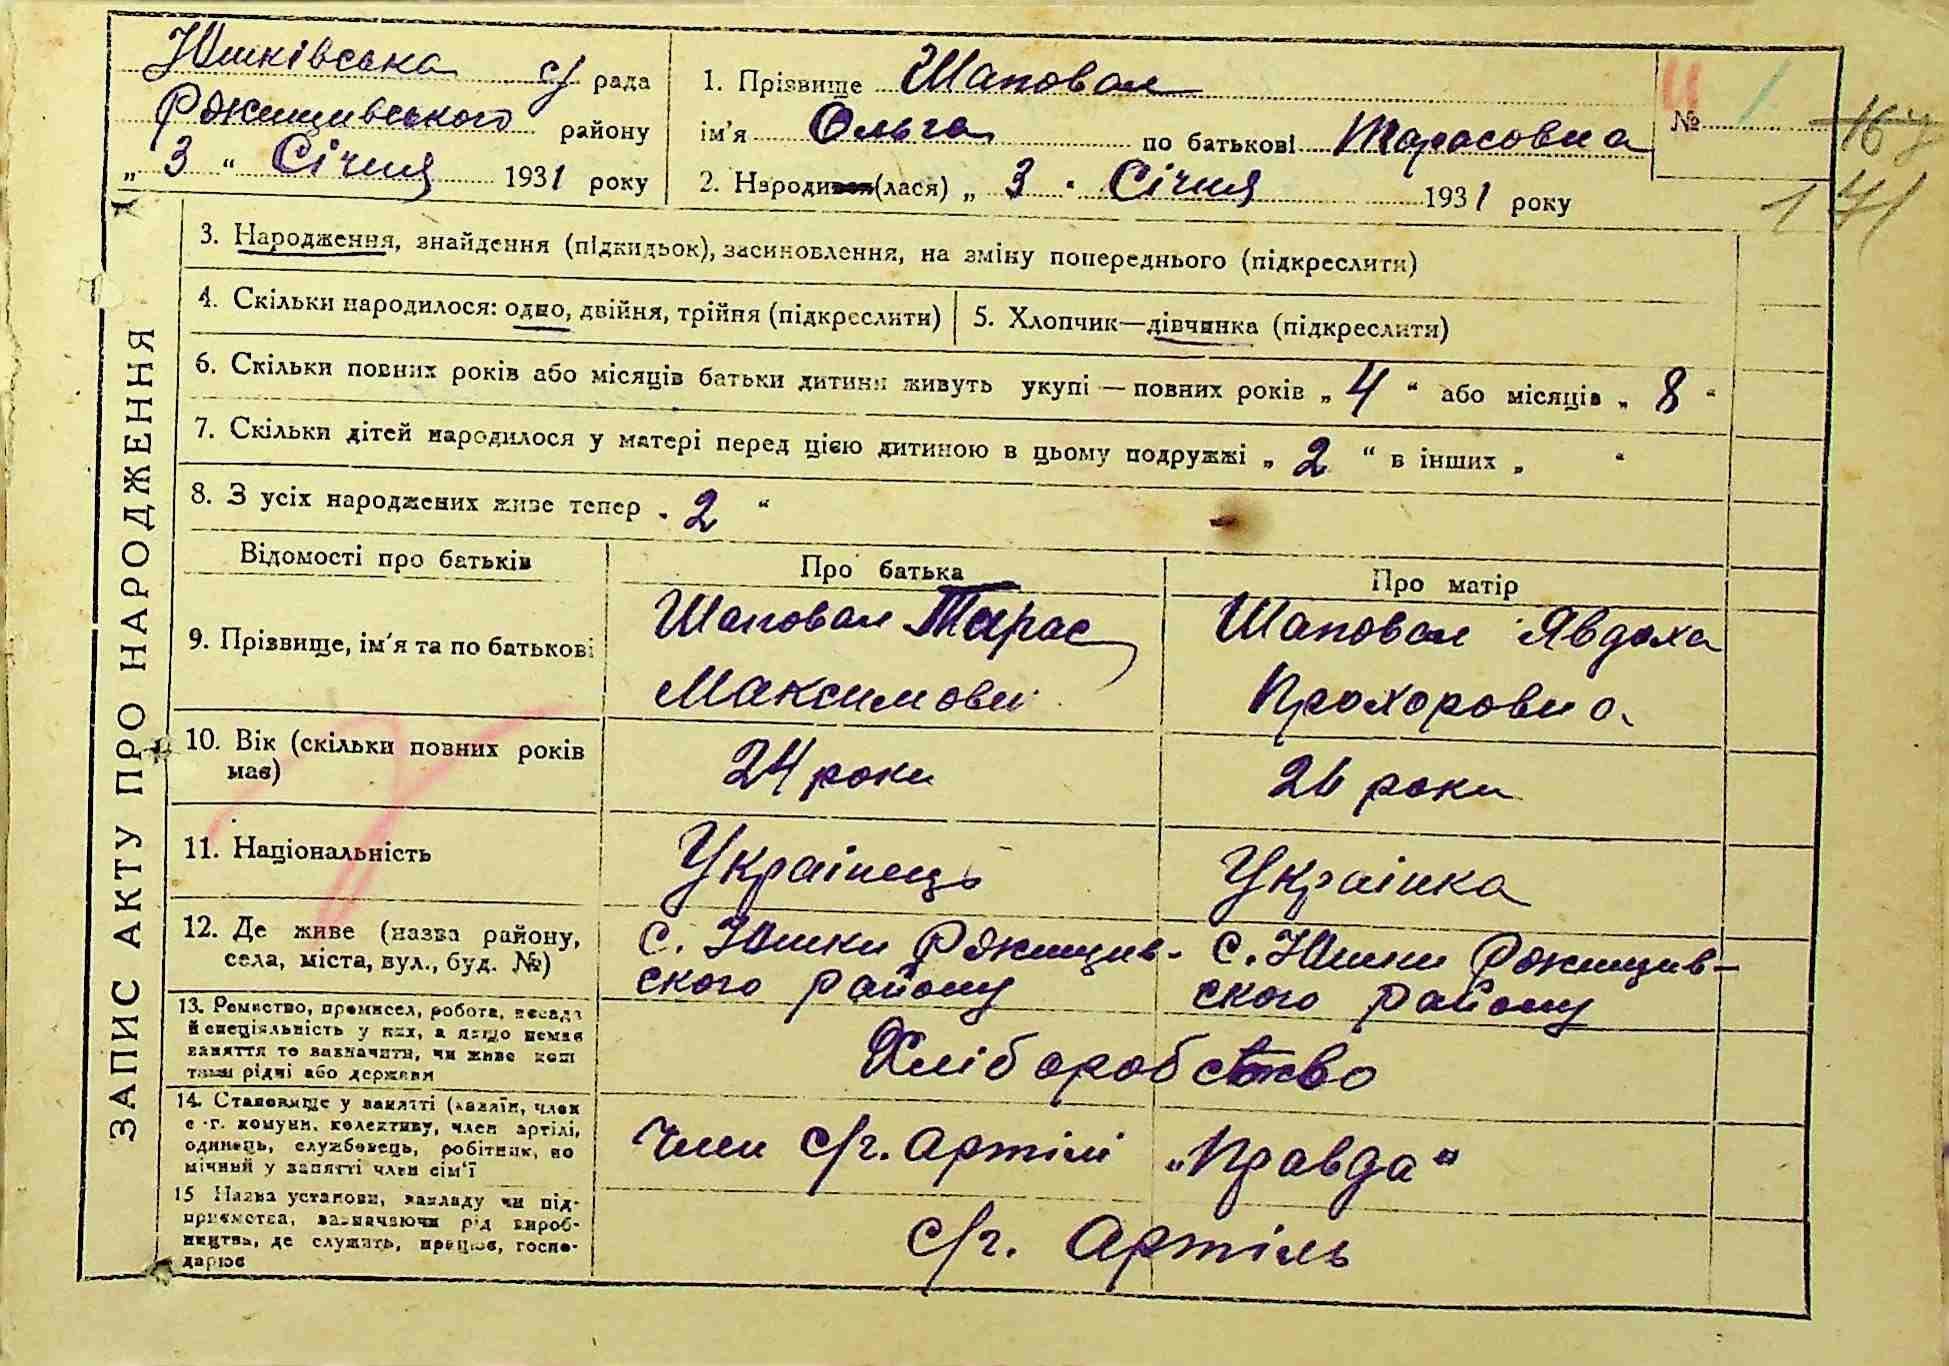 Юшківська с/рада
Ржищивського району
„ 3 “ Січня 1931 року
1. Прізвище Шаповал
ім'я Ольга по батькові Тарасовна
2. Народився(лася) „ 3 “ Січня 1931 року
№ 1
167
171
ЗАПИС АКТУ ПРО НАРОДЖЕННЯ
3. Народження, знайдення (підкидьок), засиновлення, на зміну попереднього (підкреслити)
4. Скільки народилося: одно, двійня, трійня (підкреслити)
5. Хлопчик—дівчинка (підкреслити)
6. Скільки повних років або місяців батьки дитини живуть укупі — повних років „ 4 “ або місяців „ 8 “
7. Скільки дітей народилося у матері перед цією дитиною в цьому подружжі „ 2 “ в інших „ “
8. З усіх народжених живе тепер „ 2 “
Відомості про батьків
Про батька
Про матір
9. Прізвище, ім'я та по батькові
Шаповал Тарас
Максимови
Шаповал Явдоха
Прохоровна
10. Вік (скільки повних років
має)
24 роки
26 роки
11. Національність
Українець
Українка
12. Де живе (назва району,
села, міста, вул., буд. №)
с. Юшки Ржищив-
ского району
с. Юшки Ржищив-
ского району
13. Ремество, промисел, робота, посада
й спеціяльність у них, а якщо немає
заняття то визначити, чи живе кош
тами рідні або держави
Хліборобство
14. Становище у занятті (хазяїн, член
с.-г. комуни, колективу, член артілі,
одинець, службовець, робітник, по
мічний у занятті член сім'ї
Член с/г. Артілі „Правда“
15 Назва установи, закладу чи під-
приємства, зазначаючи рід вироб-
ництва, де служить, працює, госпо-
дарює
с/г. Артіль